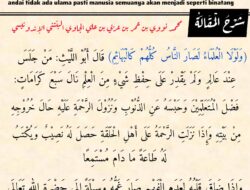 andai tidak ada ulama pasti manusia semuanya akan menjadi seperti binatang
شرح المقالة
محمد نووي بن عمر بن عربي بن علي الجاوي البنتني الإندونيسي
(وَلَوْلَا الْعُلَمَاءُ لَصَارَ النَّاسُ كُلُّهُمْ كَالْبَهَائِمِ) قَالَ أَبُو اللَّيْثِ: مَنْ جَلَسَ
عِنْدَ عَالِمٍ وَلَمْ يَقْدِرْ عَلَى حِفْظِ شَيْءٍ مِنَ الْعِلْمِ نَالَ سَبْعَ كَرَامَاتٍ:
فَضْلَ الْمُتَعَلِّمِينَ وَحَبْسَهُ عَنِ الذُّنُوبِ وَنُزُولَ الرَّحْمَةِ عَلَيْهِ حَالَ خُرُوجِهِ
مِنْ بَيْتِهِ وَإِذَا نَزَلَتِ الرَّحْمَةُ عَلَى أَهْلِ الْحَلْقَةِ حَصَلَ لَهُ نَصِيبُهُ وَيُكْتَبُ
لَهُ طَاعَةً مَا دَامَ مُسْتَمِعًا